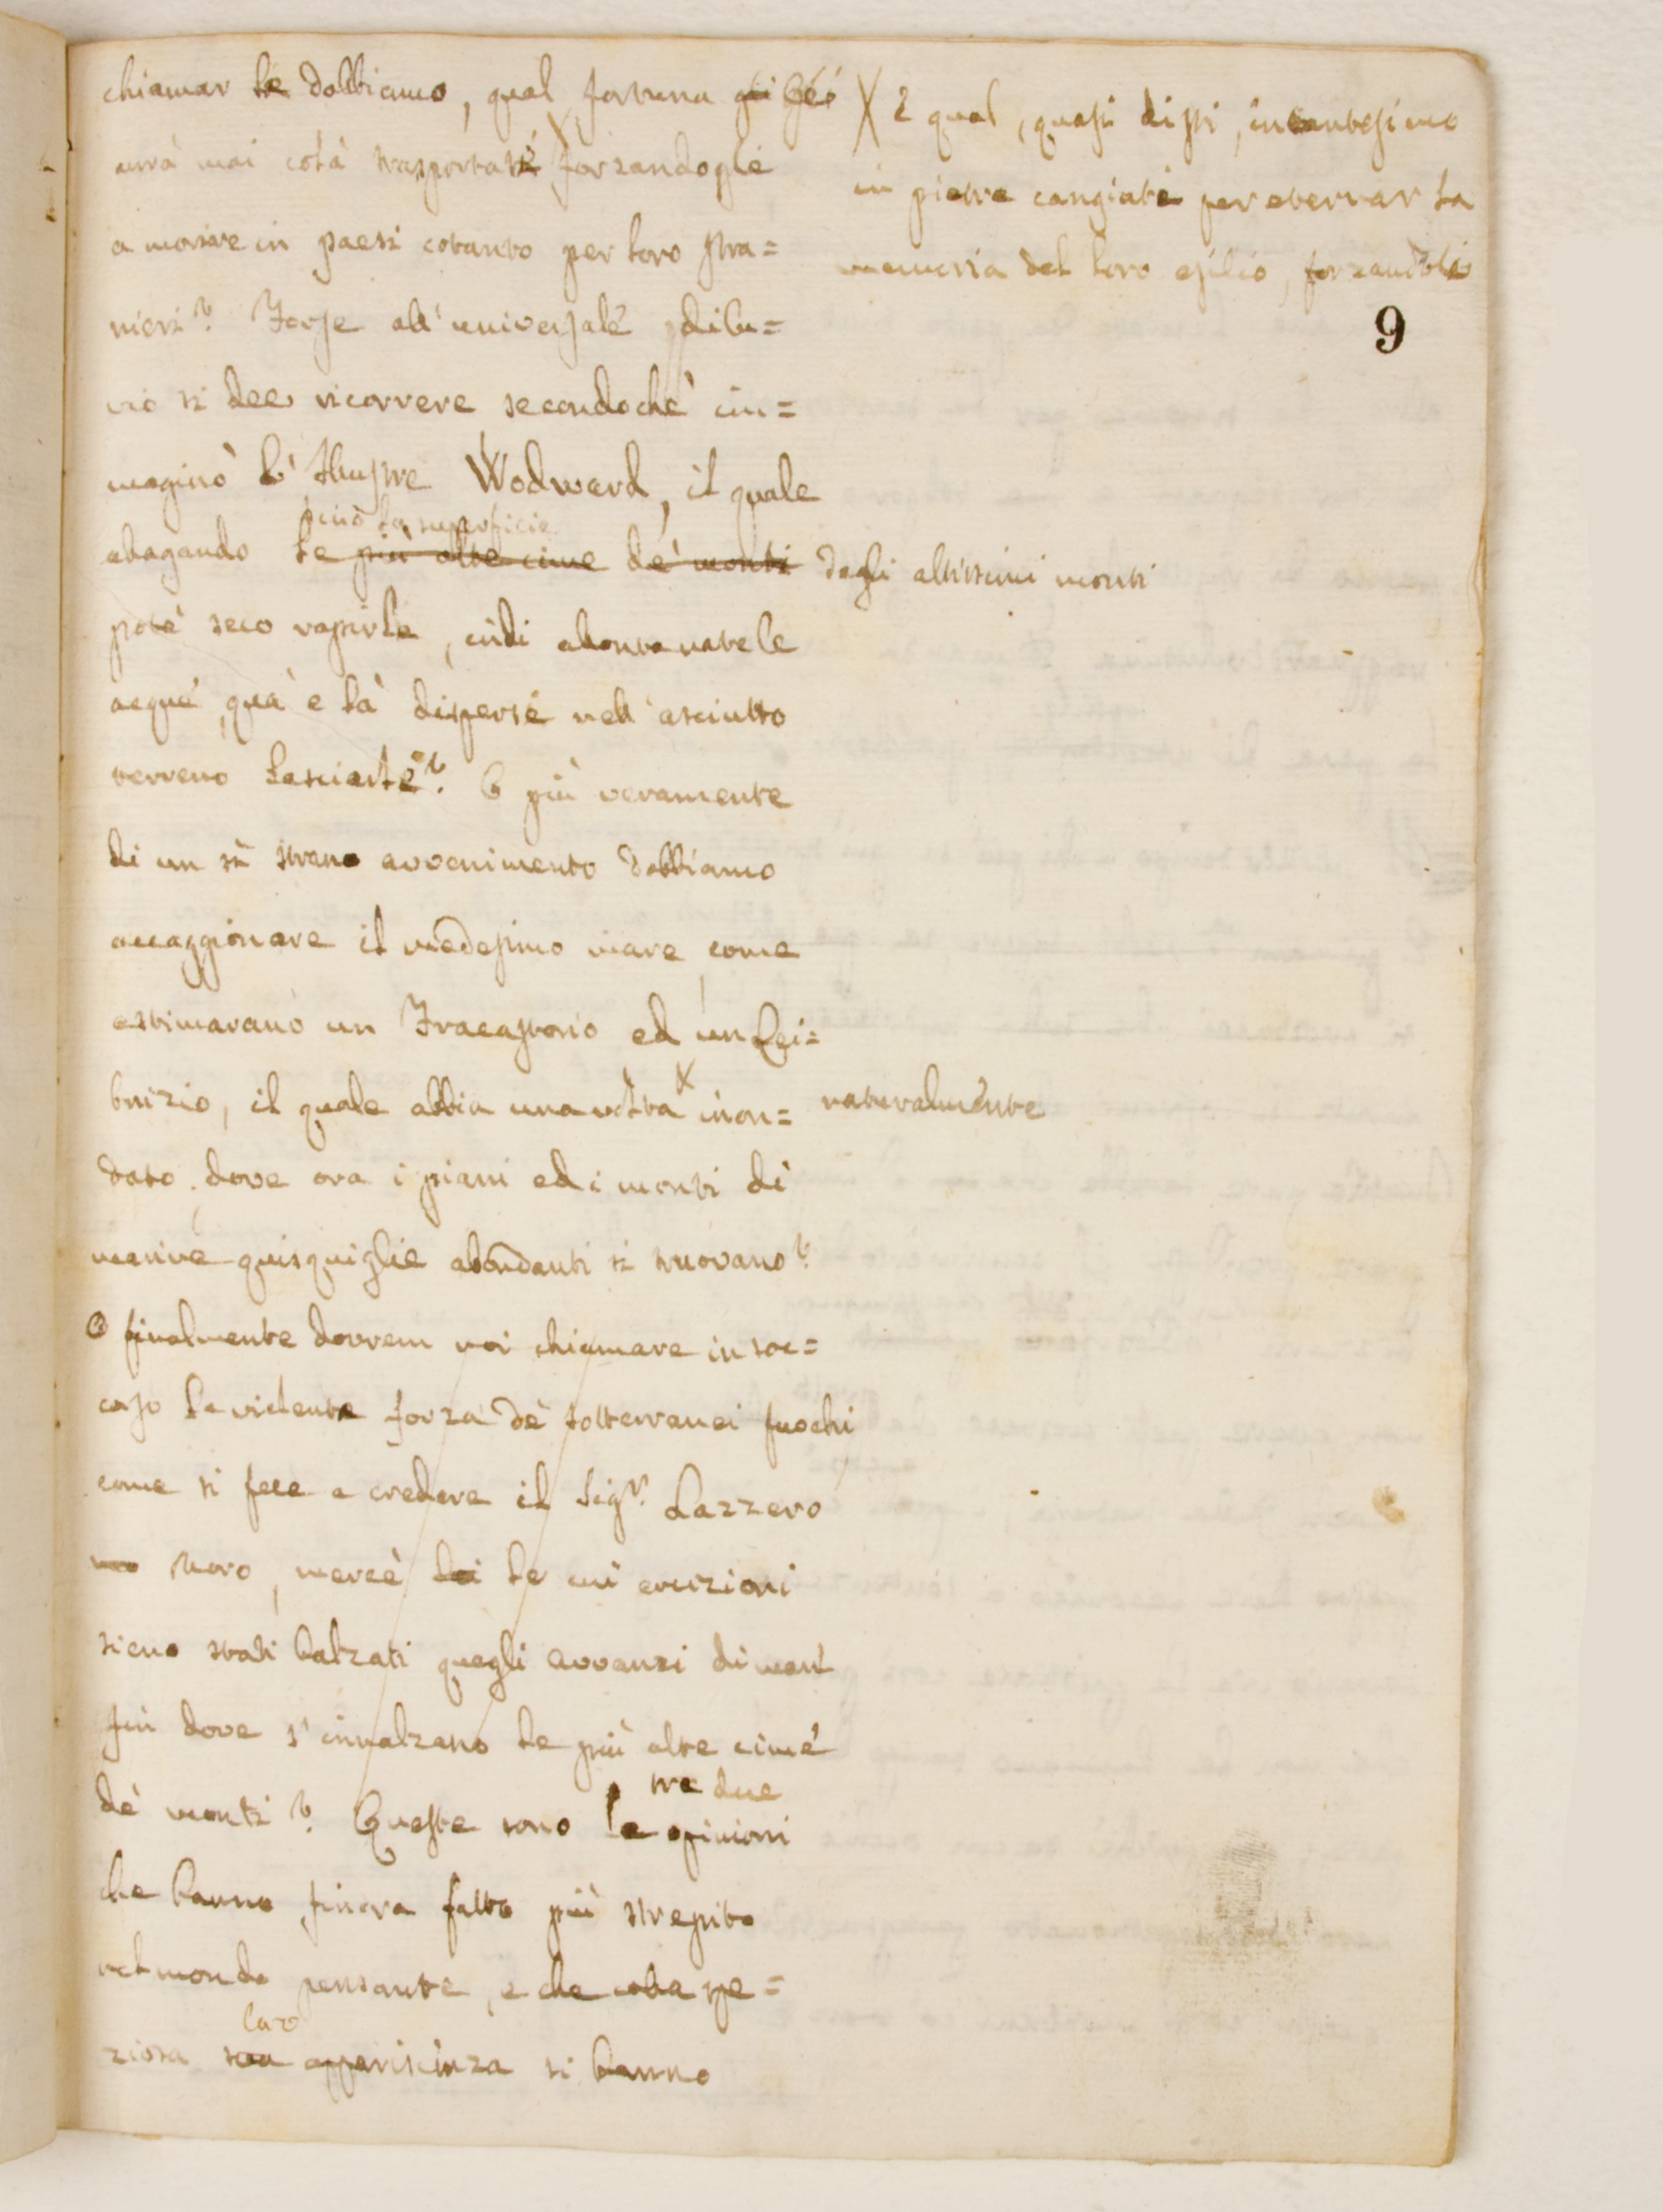 chiamar le dobbiamo, qual fortuna gli
avrà mai colà trasportati X forzandogli
a morire in paesi cotanto per loro stra=
nieri? Forse all'universale dilu=
vio si dee ricorrere secondochè im=
maginò l'Illustre Wodward, il quale
persino la superficie
allagando le più alte cime de' monti degli altissimi monti
potè seco rapirle, indi allontanate le
acque, quà e là disperse nell'asciutto
terreno lasciarle? O più veramente
di un sì strano avvenimento dobbiamo
accaggionare il medesimo mare, come
estimarano un Fracastorio ed un Lei=
bnizio, il quale abbia una volta X inon= naturalmente
dato, dove ora i piani ed i monti di
marine quisquiglie abondanti si truovano?
O finalmente dovrem noi chiamare in soc=
corso la violenta forza de' sotterranei fuochi
come si fece a credere il Sigr. Lazzero
mo Moro, mercè lei le cui eruzioni
sieno stati balzati quegli avvanzi di mare
fin dove s'innalzano le più alte cime
de' monti? Queste sono le opinioni
tre due
che hanno finora fatto più strepito
nel mondo pensante, e che colla spe=
lor
ziosa sua appariscinza si hanno
X E qual, quasi dissi, incantesimo
in pietre cangiati per eternar la
memoria del loro esilio, forzandoli
9